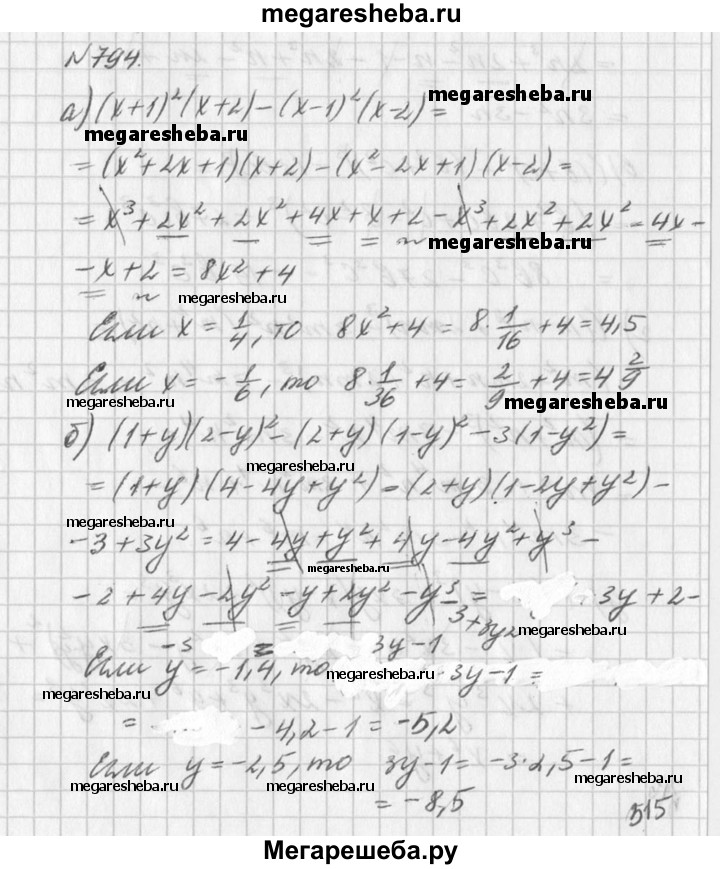 megaresheba.ru
№794.
а) (x+1)²(x+2) – (x-1)²(x-2) =
megaresheba.ru
megaresheba.ru
= (x²+2x+1)(x+2) – (x²-2x+1)(x-2) =
= x³+2x²+2x²+4x+x+2-x³+2x²+2x²-4x-
megaresheba.ru
-x+2 = 8x²+4
megaresheba.ru
megaresheba.ru
Если x = 1/4, то 8x²+4 = 8·1/16+4=4,5
Если x = -1/6, то 8·1/36+4= 2/9+4=4 2/9
megaresheba.ru
б) (1+y)(2-y)²-(2+y)(1-y)²-3(1-y²)=
megaresheba.ru
= (1+y)(4-4y+y²)-(2+y)(1-2y+y²)-
megaresheba.ru
-3+3y² = 4-4y+y²+4y-4y²+y³-
megaresheba.ru
megaresheba.ru
-2+4y-2y²-y+2y²-y³ = 3y+2-
-3+3y²
megaresheba.ru
-3 = 3y-1
Если y = -1,4, то 3y-1 =
megaresheba.ru
megaresheba.ru
megaresheba.ru
= -4,2-1 = -5,2
megaresheba.ru
Если y = -2,5, то 3y-1 = -3·2,5-1 =
megaresheba.ru
megaresheba.ru
= -8,5
515
Мегарешеба.ру